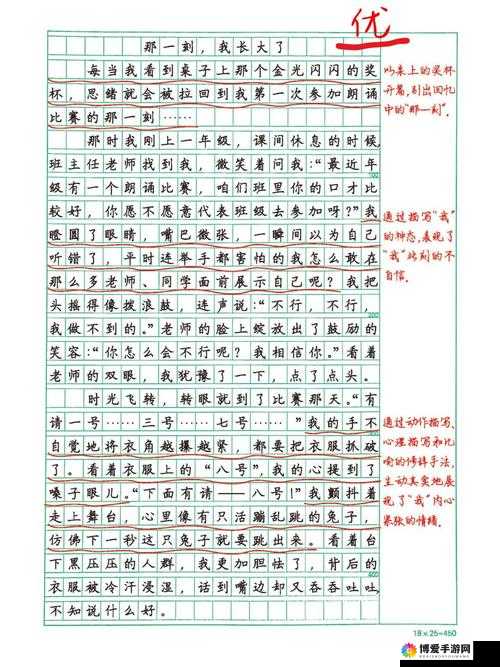 优
那一刻，我长大了
每当我看到桌子上那个金光闪闪的奖
杯，思绪就会被拉回到我第一次参加朗诵
比赛的那一刻……
那时我刚上一年级，课间休息的时候，
班主任老师找到我，微笑着问我：“最近年
级有一个朗诵比赛，咱们班里你的口才比
较好，你愿不愿意代表班级去参加呀？”我
瞪圆了眼睛，嘴巴微张，一瞬间以为自己
听错了，平时连举手都害怕的我怎么敢在
那么多老师、同学面前展示自己呢？我把
头摇得像拨浪鼓，连声说：“不行，不行，
我做不到的。”老师的脸上绽放出了鼓励的
笑容：“你怎么会不行呢？我相信你。”看着
老师的双眼，我犹豫了一下，点了点头。
时光飞转，转眼就到了比赛那天。“有
请一号……三号……七号……”我的手不
自觉地将衣角越攥越紧，都要把衣服抓破
了。看着衣服上的“八号”，我的心提到了
嗓子眼儿。“下面有请——八号！”我颤抖着
走上舞台，心里像有只活蹦乱跳的兔子，
仿佛下一秒这只兔子就要跳出来。看着台
下黑压压的人群，我更加胆怯了，背后的
衣服被冷汗浸湿，话到嘴边却又吞吞吐吐，
不知说什么好。
以桌上的奖杯
开篇，引出回忆
中的“那一刻”．
通过描写“我”
的神态，表现了
“我”此刻的不
自信．
通过动作描写、
心理描写和比
喻的修辞手法，
生动真实地展
现了“我”内心
紧张的情绪．
100
200
400
18×25=450
博爱手游网